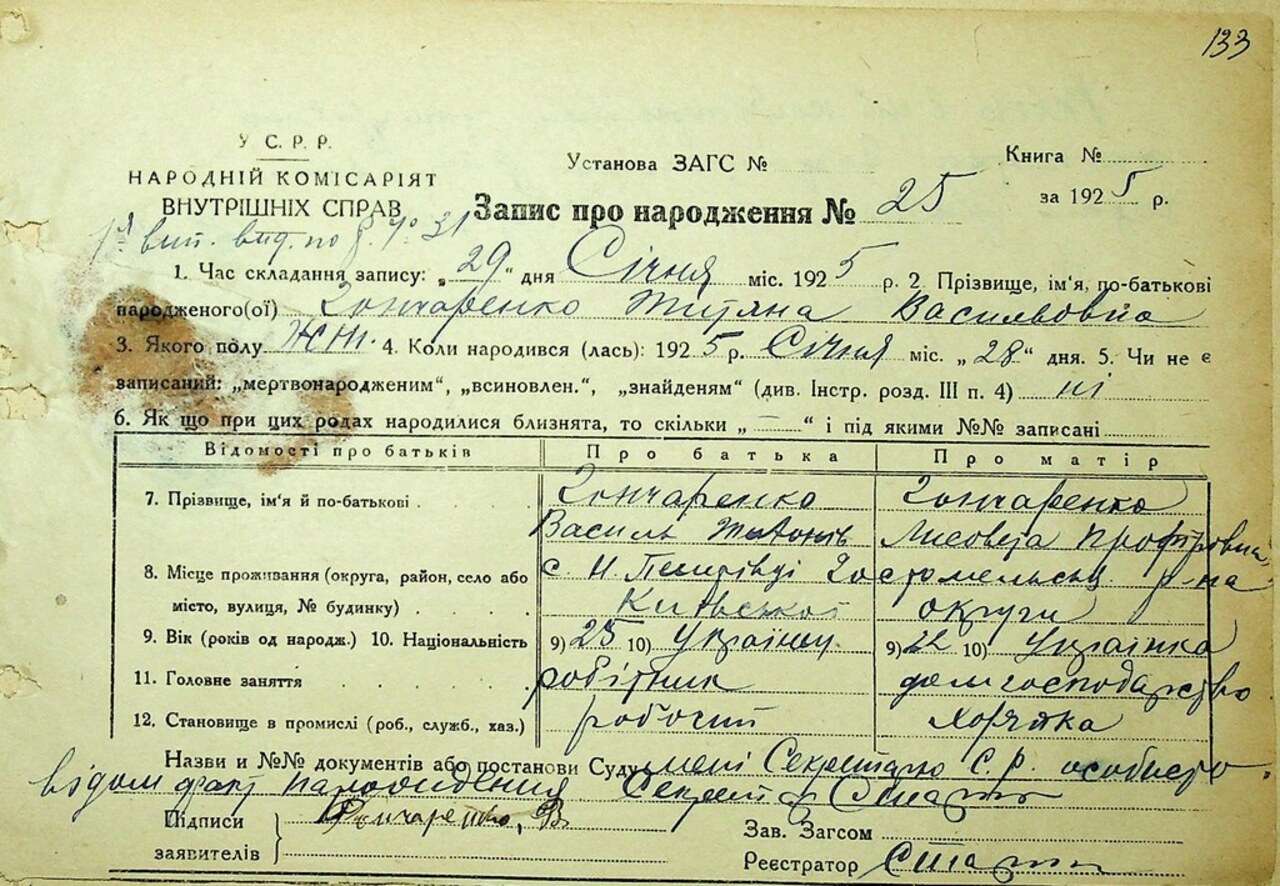 133
У С. Р. Р.
НАРОДНІЙ КОМІСАРІЯТ
ВНУТРІШНІХ СПРАВ
Установа ЗАГС №
Книга №
Запис про народження № 25
за 1925 р.
вип. вид. по № 31
1. Час складання запису: „29“ дня Січня міс. 1925 р. 2. Прізвище, ім'я, по-батькові
народженого(ої) Гончаренко Тетяна Васильовна
3. Якого полу жін. 4. Коли народився (лась): 1925 р. Січня міс. „28“ дня. 5. Чи не є
записаний: „мертвонародженим“, „всиновлен.“, „знайденям“ (див. Інстр. розд. III п. 4) ні
6. Як що при цих родах народилися близнята, то скільки „—“ і під якими №№ записані
Відомості про батьків Про батька Про матір
7. Прізвище, ім'я й по-батькові Гончаренко Гончаренко
Василь Лисовета
8. Місце проживання (округа, район, село або с. Н. Петрівці Гостомельськ. р-на
місто, вулиця, № будинку) Київської округи
9. Вік (років од народж.) 10. Національність 9) 25 10) Українец. 9) 22 10) Українка
11. Головне заняття робітник дом господарство
12. Становище в промислі (роб., служб., хаз.) робочий
Назви и №№ документів або постанови Суду мені Секретарю С. Р. особисто
відом факт народження Секрет
Підписи Гончаренко, В.
заявителів
Зав. Загсом
Реєстратор